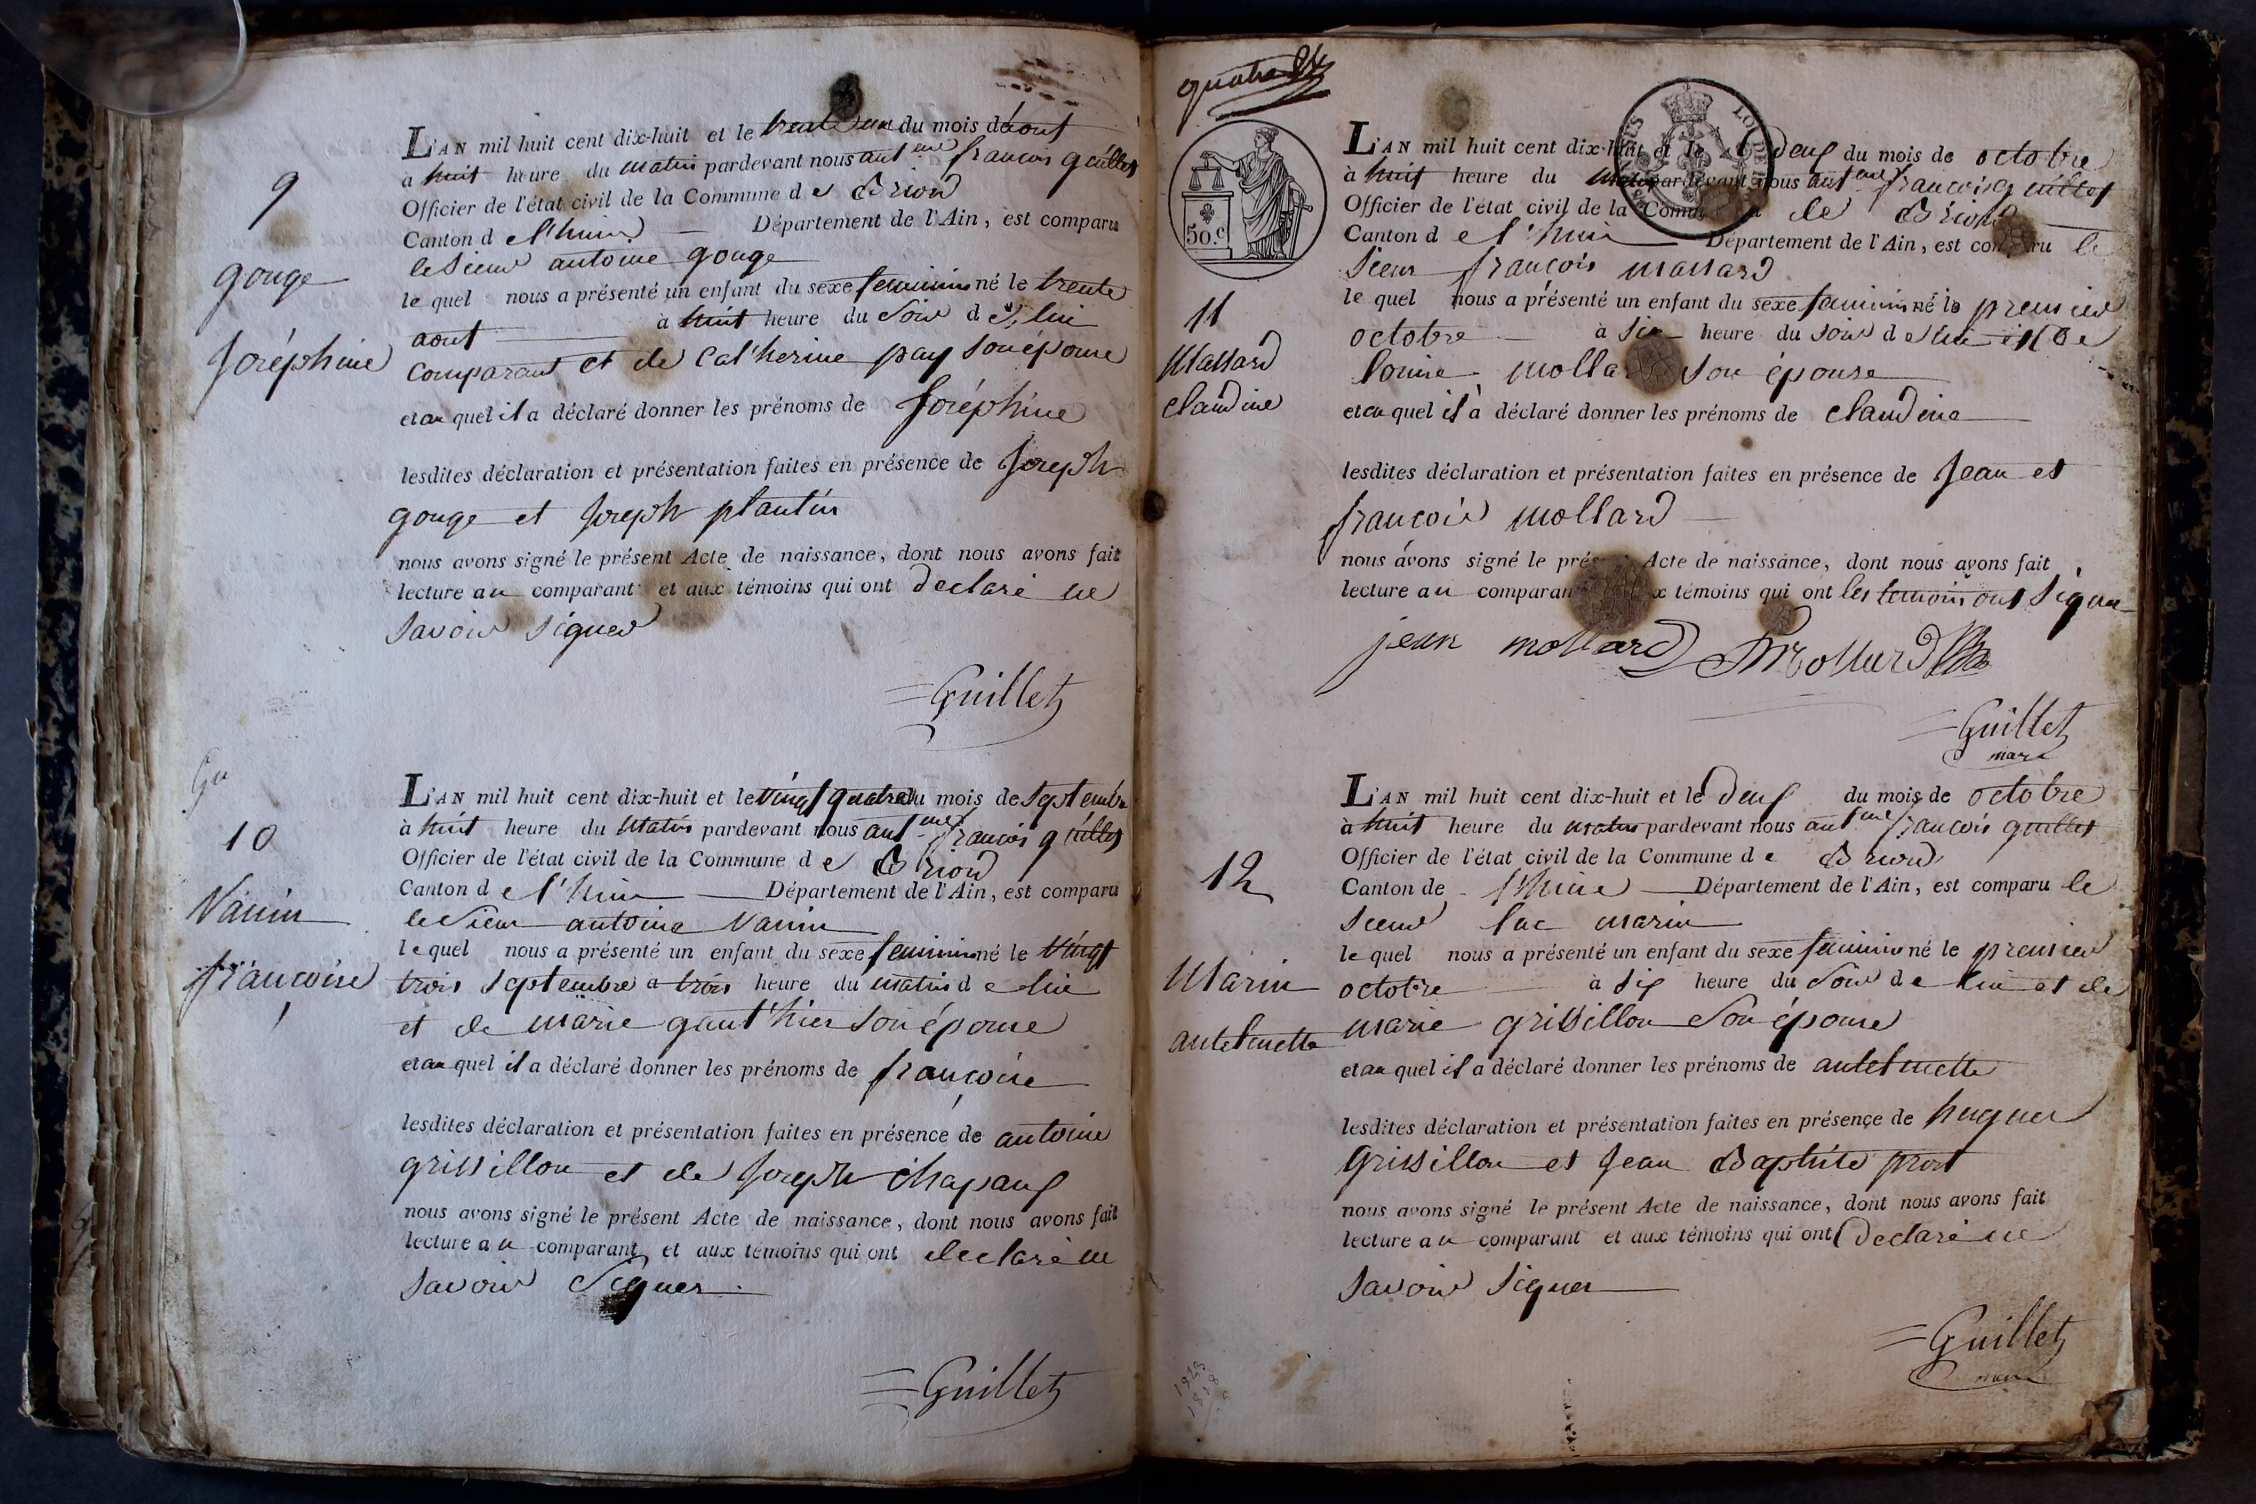 9
gouge
Joséphine
L'AN mil huit cent dix-huit et le trente un du mois daout
à huit heure du matin pardevant nous antme francois guillet
Officier de l'état civil de la Commune de Briond
Canton de l'huis Département de l'Ain, est comparu
le Sieur antoine gouge
le quel nous a présenté un enfant du sexe feminin né le trente
aout à huit heure du Soir de lui
Comparant et de Catherine pay Son épouse
et au quel il a déclaré donner les prénoms de Joséphine
lesdites déclaration et présentation faites en présence de Joseph
gouge et Joseph plantin
nous avons signé le présent Acte de naissance, dont nous avons fait
lecture au comparant et aux témoins qui ont declaré ne
Savoir Signer
Guillet
10
Vanin
françoise
L'AN mil huit cent dix-huit et le vingt quatre du mois de Septembre
à huit heure du matin pardevant nous antme francois guillet
Officier de l'état civil de la Commune de Briond
Canton de l'huis Département de l'Ain, est comparu
le Sieur antoine Vanin
le quel nous a présenté un enfant du sexe feminin né le Vingt
trois Septembre à trois heure du matin de lui
et de marie gauthier Son épouse
et au quel il a déclaré donner les prénoms de françoise
lesdites déclaration et présentation faites en présence de antoine
grissillon et de Joseph chapauf
nous avons signé le présent Acte de naissance, dont nous avons fait
lecture au comparant et aux témoins qui ont declaré ne
Savoir Signer
Guillet
quatre
50.c
11
Massard
claudine
L'AN mil huit cent dix-huit et le deux du mois de octobre
à huit heure du matin pardevant nous antme francois guillet
Officier de l'état civil de la Commune de Briond
Canton de l'huis Département de l'Ain, est comparu le
Sieur françois massard
le quel nous a présenté un enfant du sexe feminin né le premier
octobre à Six heure du soir de lui et de
louise mollard Son épouse
et au quel il a déclaré donner les prénoms de claudine
lesdites déclaration et présentation faites en présence de Jean et
françois mollard
nous avons signé le présent Acte de naissance, dont nous avons fait
lecture au comparant et aux témoins qui ont les temoins ont Signé
jean mollard mollard
Guillet
maire
12
Marin
antelmette
L'AN mil huit cent dix-huit et le deux du mois de octobre
à huit heure du matin pardevant nous antme francois guillet
Officier de l'état civil de la Commune de Briond
Canton de l'huis Département de l'Ain, est comparu le
Sieur luc marin
le quel nous a présenté un enfant du sexe feminin né le premier
octobre à Six heure du Soir de lui et de
marie grissillon Son épouse
et au quel il a déclaré donner les prénoms de antelmette
lesdites déclaration et présentation faites en présence de hugues
grissillon et Jean Baptiste prost
nous avons signé le présent Acte de naissance, dont nous avons fait
lecture au comparant et aux témoins qui ont Declaré ne
Savoir Signer
Guillet
maire